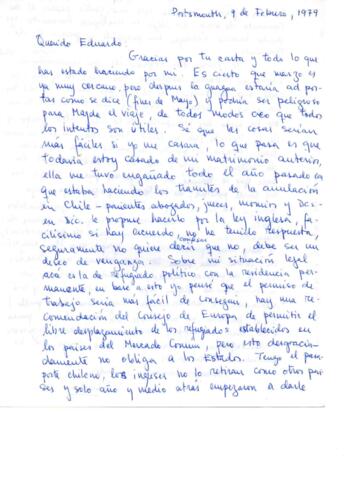 Portsmouth, 9 de Febrero, 1979
Querido Eduardo:
Gracias por tu carta y todo lo que
has estado haciendo por mi. Es cierto que marzo es
ya muy cercano, pero después la guagua estaría ad por-
tas como se dice (fines de Mayo) y podría ser peligroso
para Magda el viaje, de todos modos creo que todos
los intentos son útiles. Sé que las cosas serían
más fáciles si yo me casara, lo que pasa es que
todavía estoy casado de mi matrimonio anterior,
ella me tuvo engañado todo el año pasado en que
estaba haciendo los tramites de la anulación
en Chile - parientes abogados, jueces, monios y
en Dic. le propuse hacerlo por la ley inglesa, fa-
cilísimo si hay acuerdo, no he tenido respuesta,
seguramente no quiere decir que no, debe ser un
deseo de venganza. Sobre mi situación legal
acá es la de refugiado político con la residencia per-
manente, en base a esto yo pensé que el permiso de
trabajo sería más fácil de conseguir, hay una re-
comendación del Consejo de Europa de permitir el
libre desplazamiento de los refugiados establecidos en
los países del Mercado Común, pero esto desgracia-
damente no obliga a los Estados. Tengo el pasa-
porte chileno, los ingleses no lo retiran como otros paí-
ses y solo año y medio atrás empezaron a darle